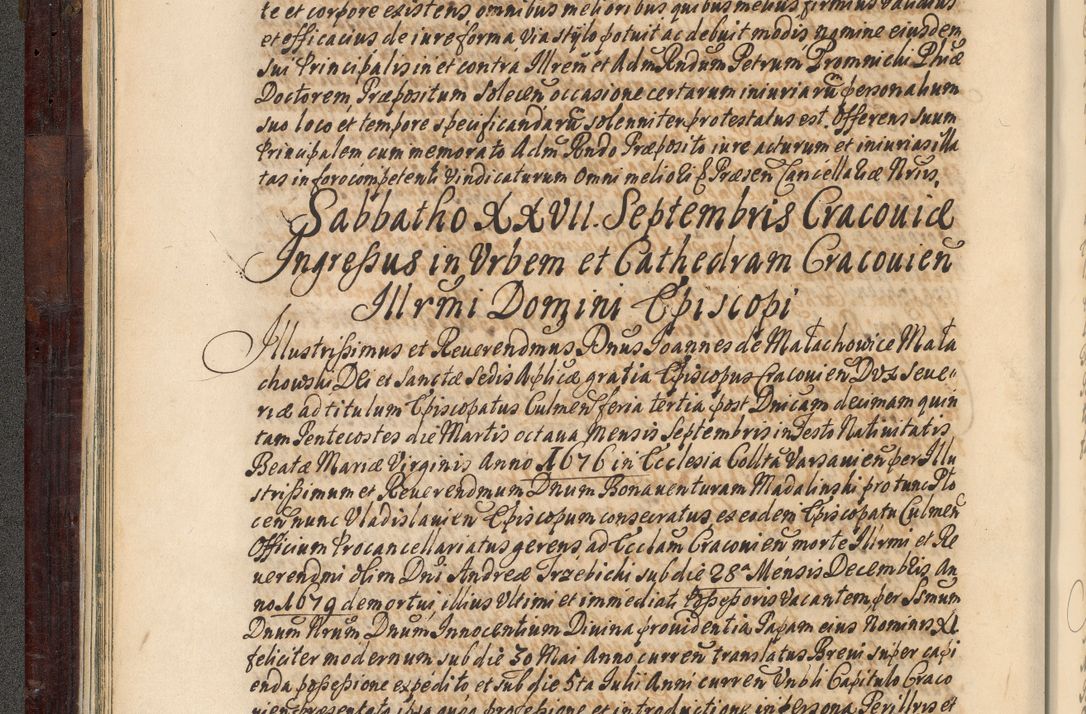 te et corpore existens omnibus melioribus quibus melius firmius validius
et efficacius de iure forma via stylo potuit ac debuit modis nomine eiusdem
sui Principalis in et contra Illrem et Adm Rndum Petrum Promnicki Phiæ
Doctorem Præpositum Solecen̄ occasione certarum iniuriarū personalium
suo loco et tempore specificandarū solenniter protestatus est. Offerens suum
Principalem cum memorato Adm Rndo Præposito iure acturum et iniurias illa
tas in foro competenti vindicaturum Omni meliori Præsen Cancellariæ Nrius.
Sabbatho XXVII. Septembris Cracoviæ
Ingreßus in Vrbem et Cathedram Cracovien̄
Illrm̄i Domini Episcopi
Illustrißimus et Reuerendmus Dnus Ioannes de Małachowice Mała
chowski Dei et Sanctæ Sedis Aplicæ gratia Episcopus Cracovien Dux Seue„
riæ ad titulum Episcopatus Culmen̄ feria tertia post Dnicam decimam quin
tam Pentecostes die Martis octaua Mensis Septembris in Festo Nativitatis
Beatæ Mariæ Virginis Anno 1676 in Ecclesia Collta Varsavien̄ per Illu
strißimum et Reuerendmum Dnum Bonauenturam Madalinski pro tunc Plo
cen̄ nunc Vladislavien̄ Episcopum consecratus, ex eodem Episcopatu Culmen̄
Officium Procancellariatus gerens, ad Eccłam Cracovien̄ morte Illrmi et Re
uerendmi olim Dni Andreæ Trzebicki sub die 28a Mensis Decembris An
no 1679 demortui, illius Vltimi et immediati Poßeßoris vacantem, per Ssmum
Dnum Nrum Dnum Innocentium Divina providentia Papam eius Nominis XI
feliciter modernum sub die 30 Mai Anno curren̄ translatus Breui super capi
enda poßeßione expedito et sub die 5ta Iulii Anni curren̄ Vnbli Capitulo Craco
vien præsentato ipsaque poßeßione et introductione in persona Perillris et